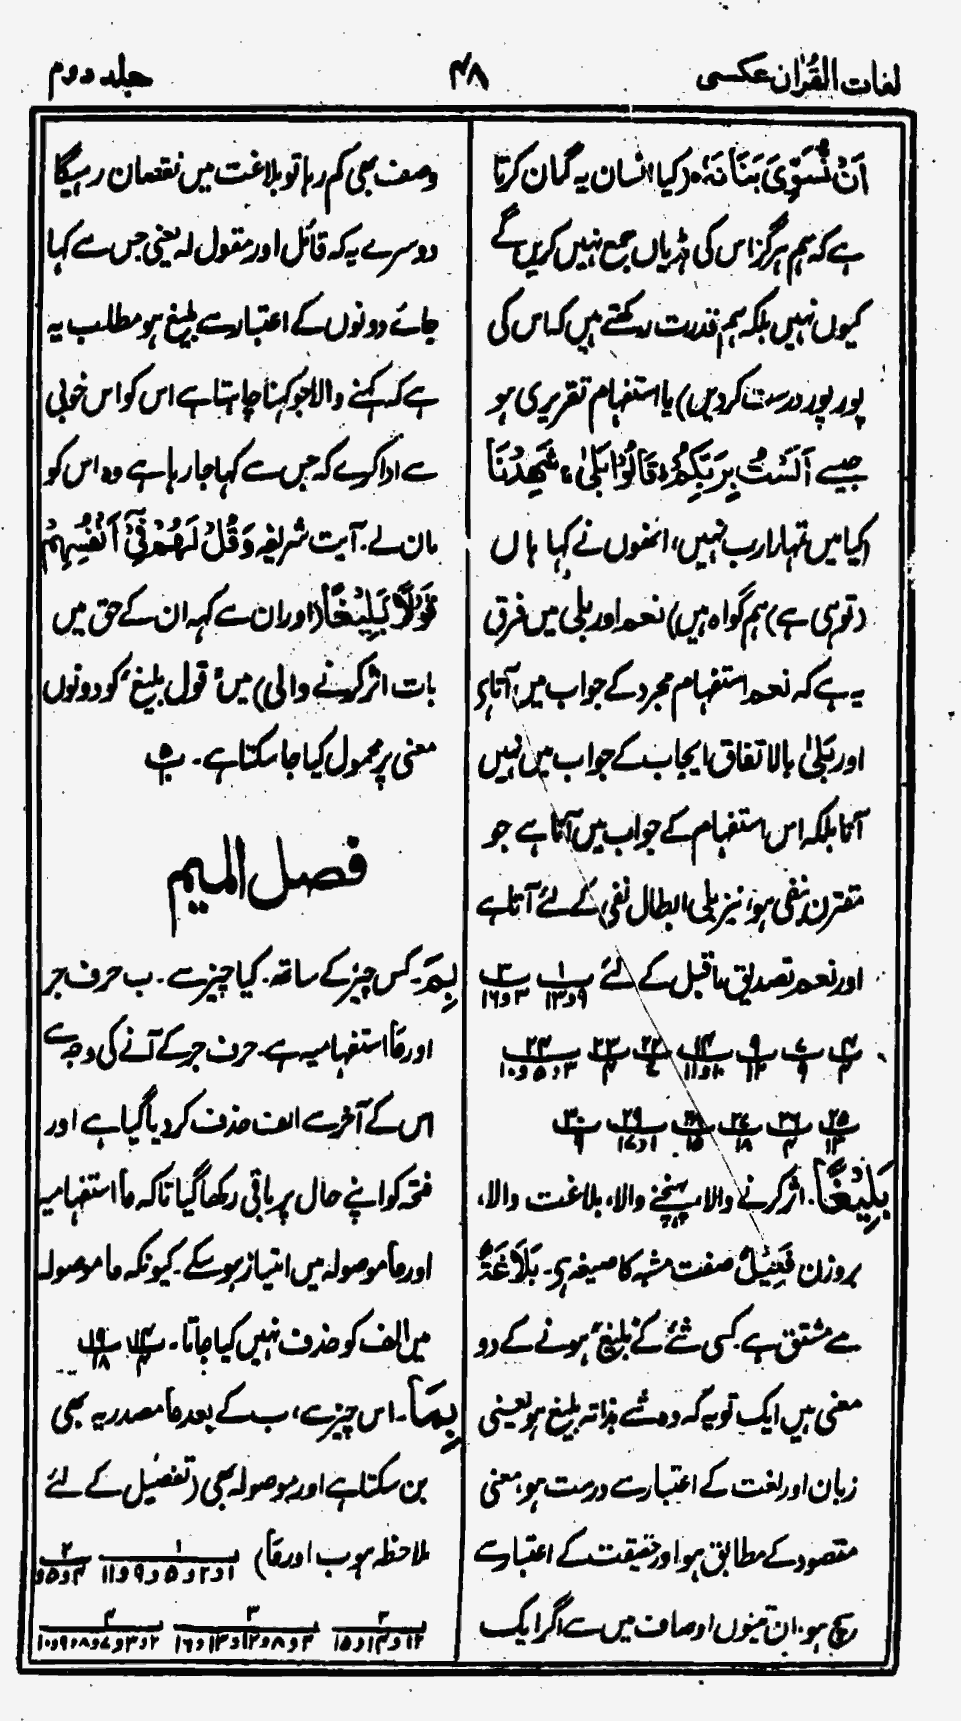 لغات القرآن عکسی
۴۸
جلد دوم
اَنْ نُّسَوِّیَ بَنَانَهٗ ۰ (کیا انسان یہ گمان کرتا
ہے کہ ہم ہرگز اس کی ہڈیاں جمع نہیں کریں گے
کیوں نہیں بلکہ ہم قدرت رکھتے ہیں کہ اس کی
پور پور درست کردیں) یا استفہام تقریری ہو
جیسے اَلَسْتُ بِرَبِّکُمْ ؕ قَالُوْا بَلٰی ۛ شَهِدْنَا
(کیا میں تمہارا رب نہیں، انھوں نے کہا ہاں
(تو ہی ہے) ہم گواہ ہیں) نعم اور بلی میں فرق
یہ ہے کہ نعم استفہام مجرد کے جواب میں آتا ہے
اور بَلٰی بالاتفاق ایجاب کے جواب میں نہیں
آتا بلکہ اس استفہام کے جواب میں آتا ہے جو
مقترن بنفی ہو، نیز بلی ابطال نفی کے لئے آتا ہے
اور نعم تصدیق ماقبل کے لئے ۱ ۹و۱۳ ۳ ۳و۱۶
۴ ۴ ۷ ۹ ۹ ۱۲ ۱۴ ۱۰و۱۱ ۲۲ ۷ ۲۳ ۴ ۲۴ ۳و۵و۱۰
۲۵ ۱۳ ۲۶ ۴ ۲۷ ۱۸ ۲۸ ۱۵ ۲۹ ۱و۱۷ ۳۰ ۹
بَلِیْغًا۔ اثر کرنے والا، پہنچنے والا، بلاغت والا،
بروزن فَعِیْلٌ صفت مشبہ کا صیغہ ہے۔ بَلَاغَةٌ
سے مشتق ہے۔ کسی شے کے بلیغ ہونے کے دو
معنی ہیں ایک تو یہ کہ وہ شے بذاتہ بلیغ ہو یعنی
زبان اور لغت کے اعتبار سے درست ہو، معنی
مقصود کے مطابق ہو اور حقیقت کے اعتبار سے
سچ ہو، ان تینوں اوصاف میں سے اگر ایک
وصف بھی کم رہا تو بلاغت میں نقصان رہیگا
دوسرے یہ کہ قائل اور مقول لہ یعنی جس سے کہا
جائے دونوں کے اعتبار سے بلیغ ہو مطلب یہ
ہے کہ کہنے والا جو کہنا چاہتا ہے اس کو اس خوبی
سے ادا کرے کہ جس سے کہا جا رہا ہے وہ اس کو
مان لے۔ آیت شریفہ وَقُلْ لَّهُمْ فِیْٓ اَنْفُسِهِمْ
قَوْلًا بَلِیْغًا (اور ان سے کہہ ان کے حق میں
بات اثر کرنے والی) میں قول بلیغ، کو دونوں
معنی پر محمول کیا جا سکتا ہے۔ ۵
فصل المیم
بِمَ۔ کس چیز کے ساتھ۔ کیا چیز سے۔ ب حرف جر
اور مَا استفہامیہ ہے۔ حرف جر کے آنے کی وجہ سے
اس کے آخر سے الف حذف کر دیا گیا ہے اور
فتحہ کو اپنے حال پر باقی رکھا گیا تاکہ ما استفہامیہ
اور ما موصولہ میں امتیاز ہو سکے۔ کیونکہ ما موصولہ
میں الف کو حذف نہیں کیا جاتا۔ ۱۴ ۴ ۱۹ ۱۸
بِمَا۔ اس چیز سے، ب کے بعد ما مصدریہ بھی
بن سکتا ہے اور موصولہ بھی (تفصیل کے لئے
ملاحظہ ہو ب اور مَا) ۱ ۱و۲و۵و۹و۱۱ ۲ ۴و۵و
۲ ۱۲و۱۴و۱۵ ۳ ۴و۸و۱۲و۱۳و۱۶ ۴ ۲و۳و۷و۸و۹و۱۰